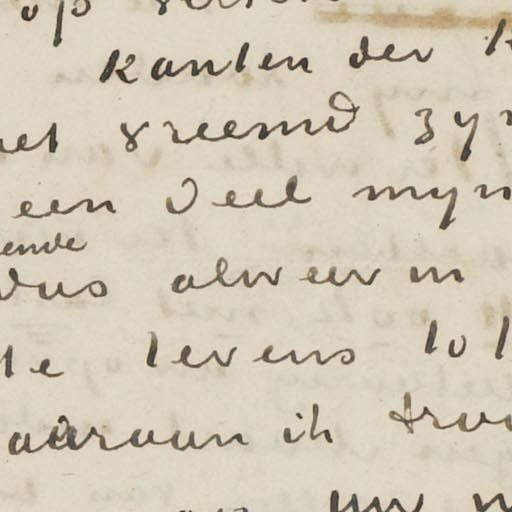 op
kanten der
vreemd zyn
een deel myn
ende
dus alweer in
te levens tot
aaraan ik
uw